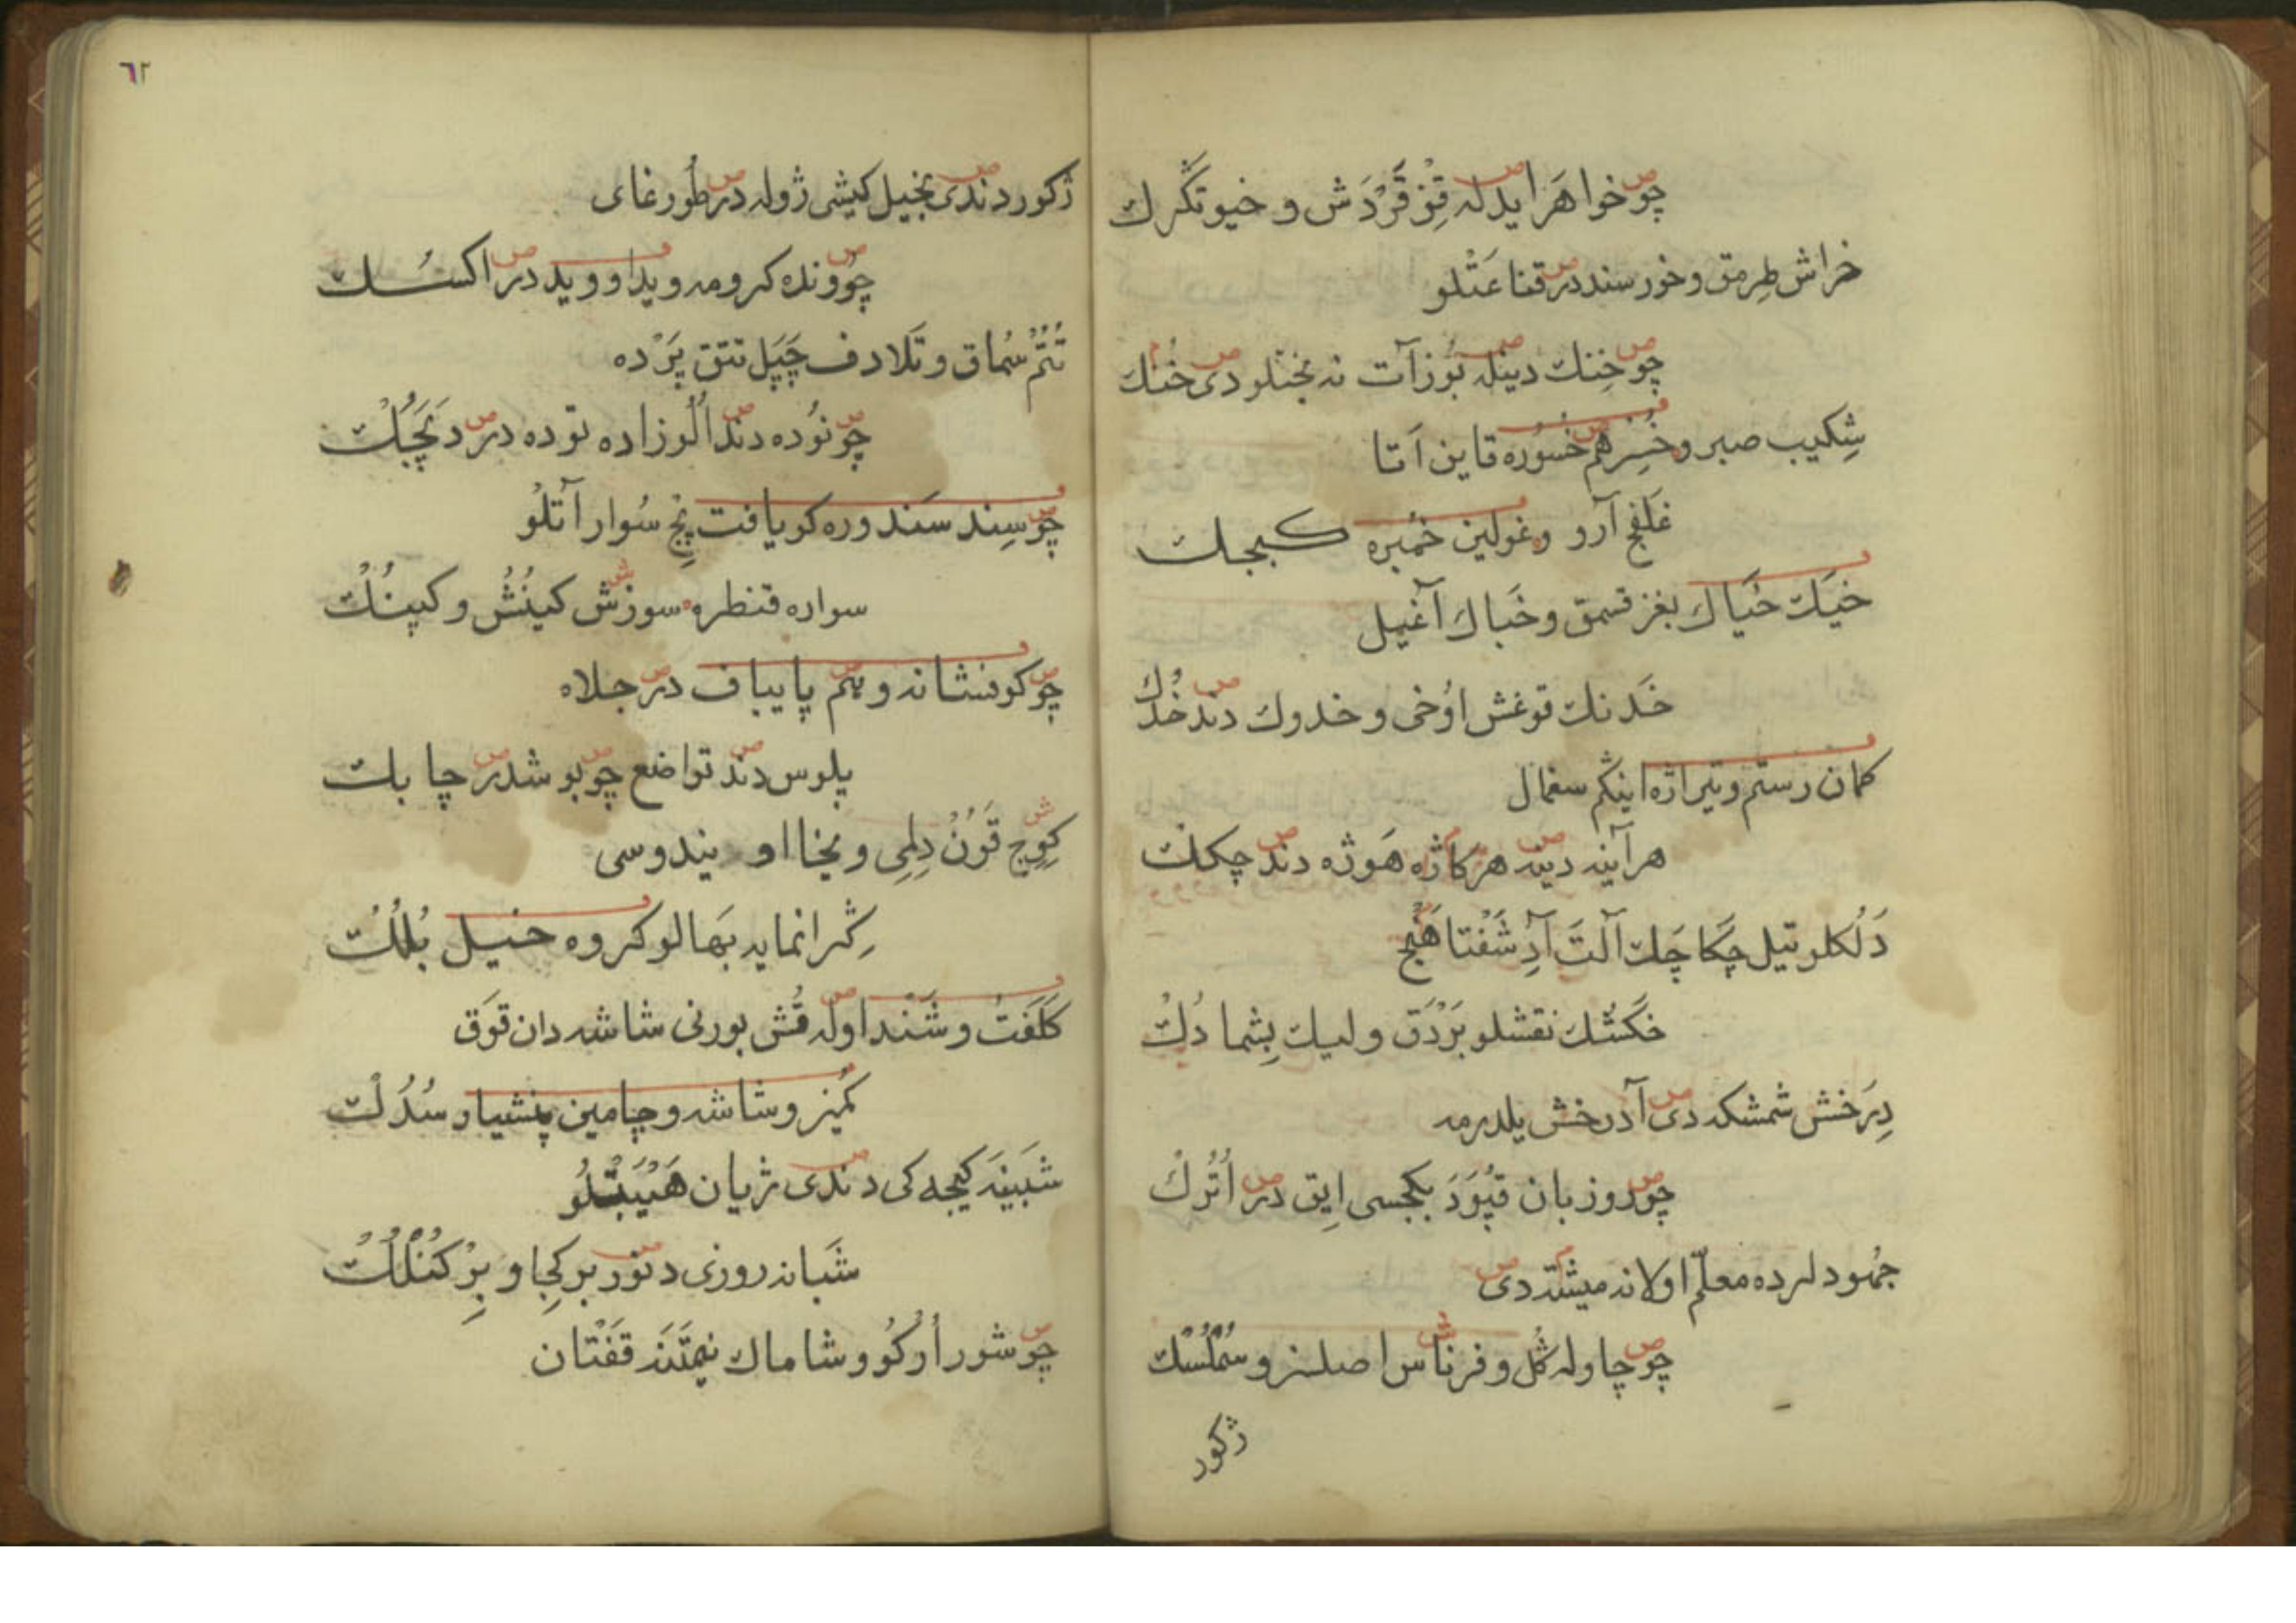 چو خواهر ایدله قِزْ قَرْدَش و خیو تُكْرك
خراش طرمق و خورسند در قناعَتْلو
چو خِنك دینله بُوز آت نه بختلو دی خُنك
شِكیب صبر و خُسُر هم خسُوره قاین آتا
غلفج آرو و غولین خمبره كبجك
خیَك خیَاك بغز قسمق و خَباك آغیل
خَدنك قوغش اوُخی و خدوك دند خُدُك
كمان رستم و تیراژه اینكم سغمال
هر آینه دینه هركاژه هَوژه دند چكك
دَلُكلو تیل چكا چَك آلَتَ آدِ شَفْتاهَنْج
خَكَشُك نقشلو بَرْدَق و لیك بِشما دُكْ
دِرَخش شمشكه دی آدرخش یلدرمه
چو دوزبان قپُوَدَ بكجسی ایق در اُتُرك
جُهود لرده معلّم اولانه میشنه دی
چو چاوله كُل و فرناس اصلنز و سُمْلُسُك
ژكور
٦٢
ژكور دندی بخیل كیشی ژوله در طُورغای
چُو ونده كرومه ویدا و وید در اكسُك
تُتُمْ سُماق و تَلادف چَپَل تتق پَرْده
چو نوُده دند الُوزاده توده در دَنجَك
چو سِند سَندوره كو یافت پنج سُوار آتْلُو
سواره قنطره سوزش كینُش و كپنُك
چو كوفشانه و تیم پایباف در جلاه
پلوس دند تواضع چو بوشدر چابك
كوِج قَوُن دِلِمی و یخنا او یندوسی
كِرانمایه بهالو كروه خیل بُلُك
كَلَفَت و شَنْد اوله قُش بورنی شاشه دان قوَق
كُمیز و شاشه و چامین پنشیار سُدُك
شَبَینَه كیجه كی دندی ژیان هَیْبَتْلُو
شَبانه روزی دنور بر كِجا و بِرْ كُنْلُك
چو شور اُركُو و شاماك نیمتَنَه قَفْتان